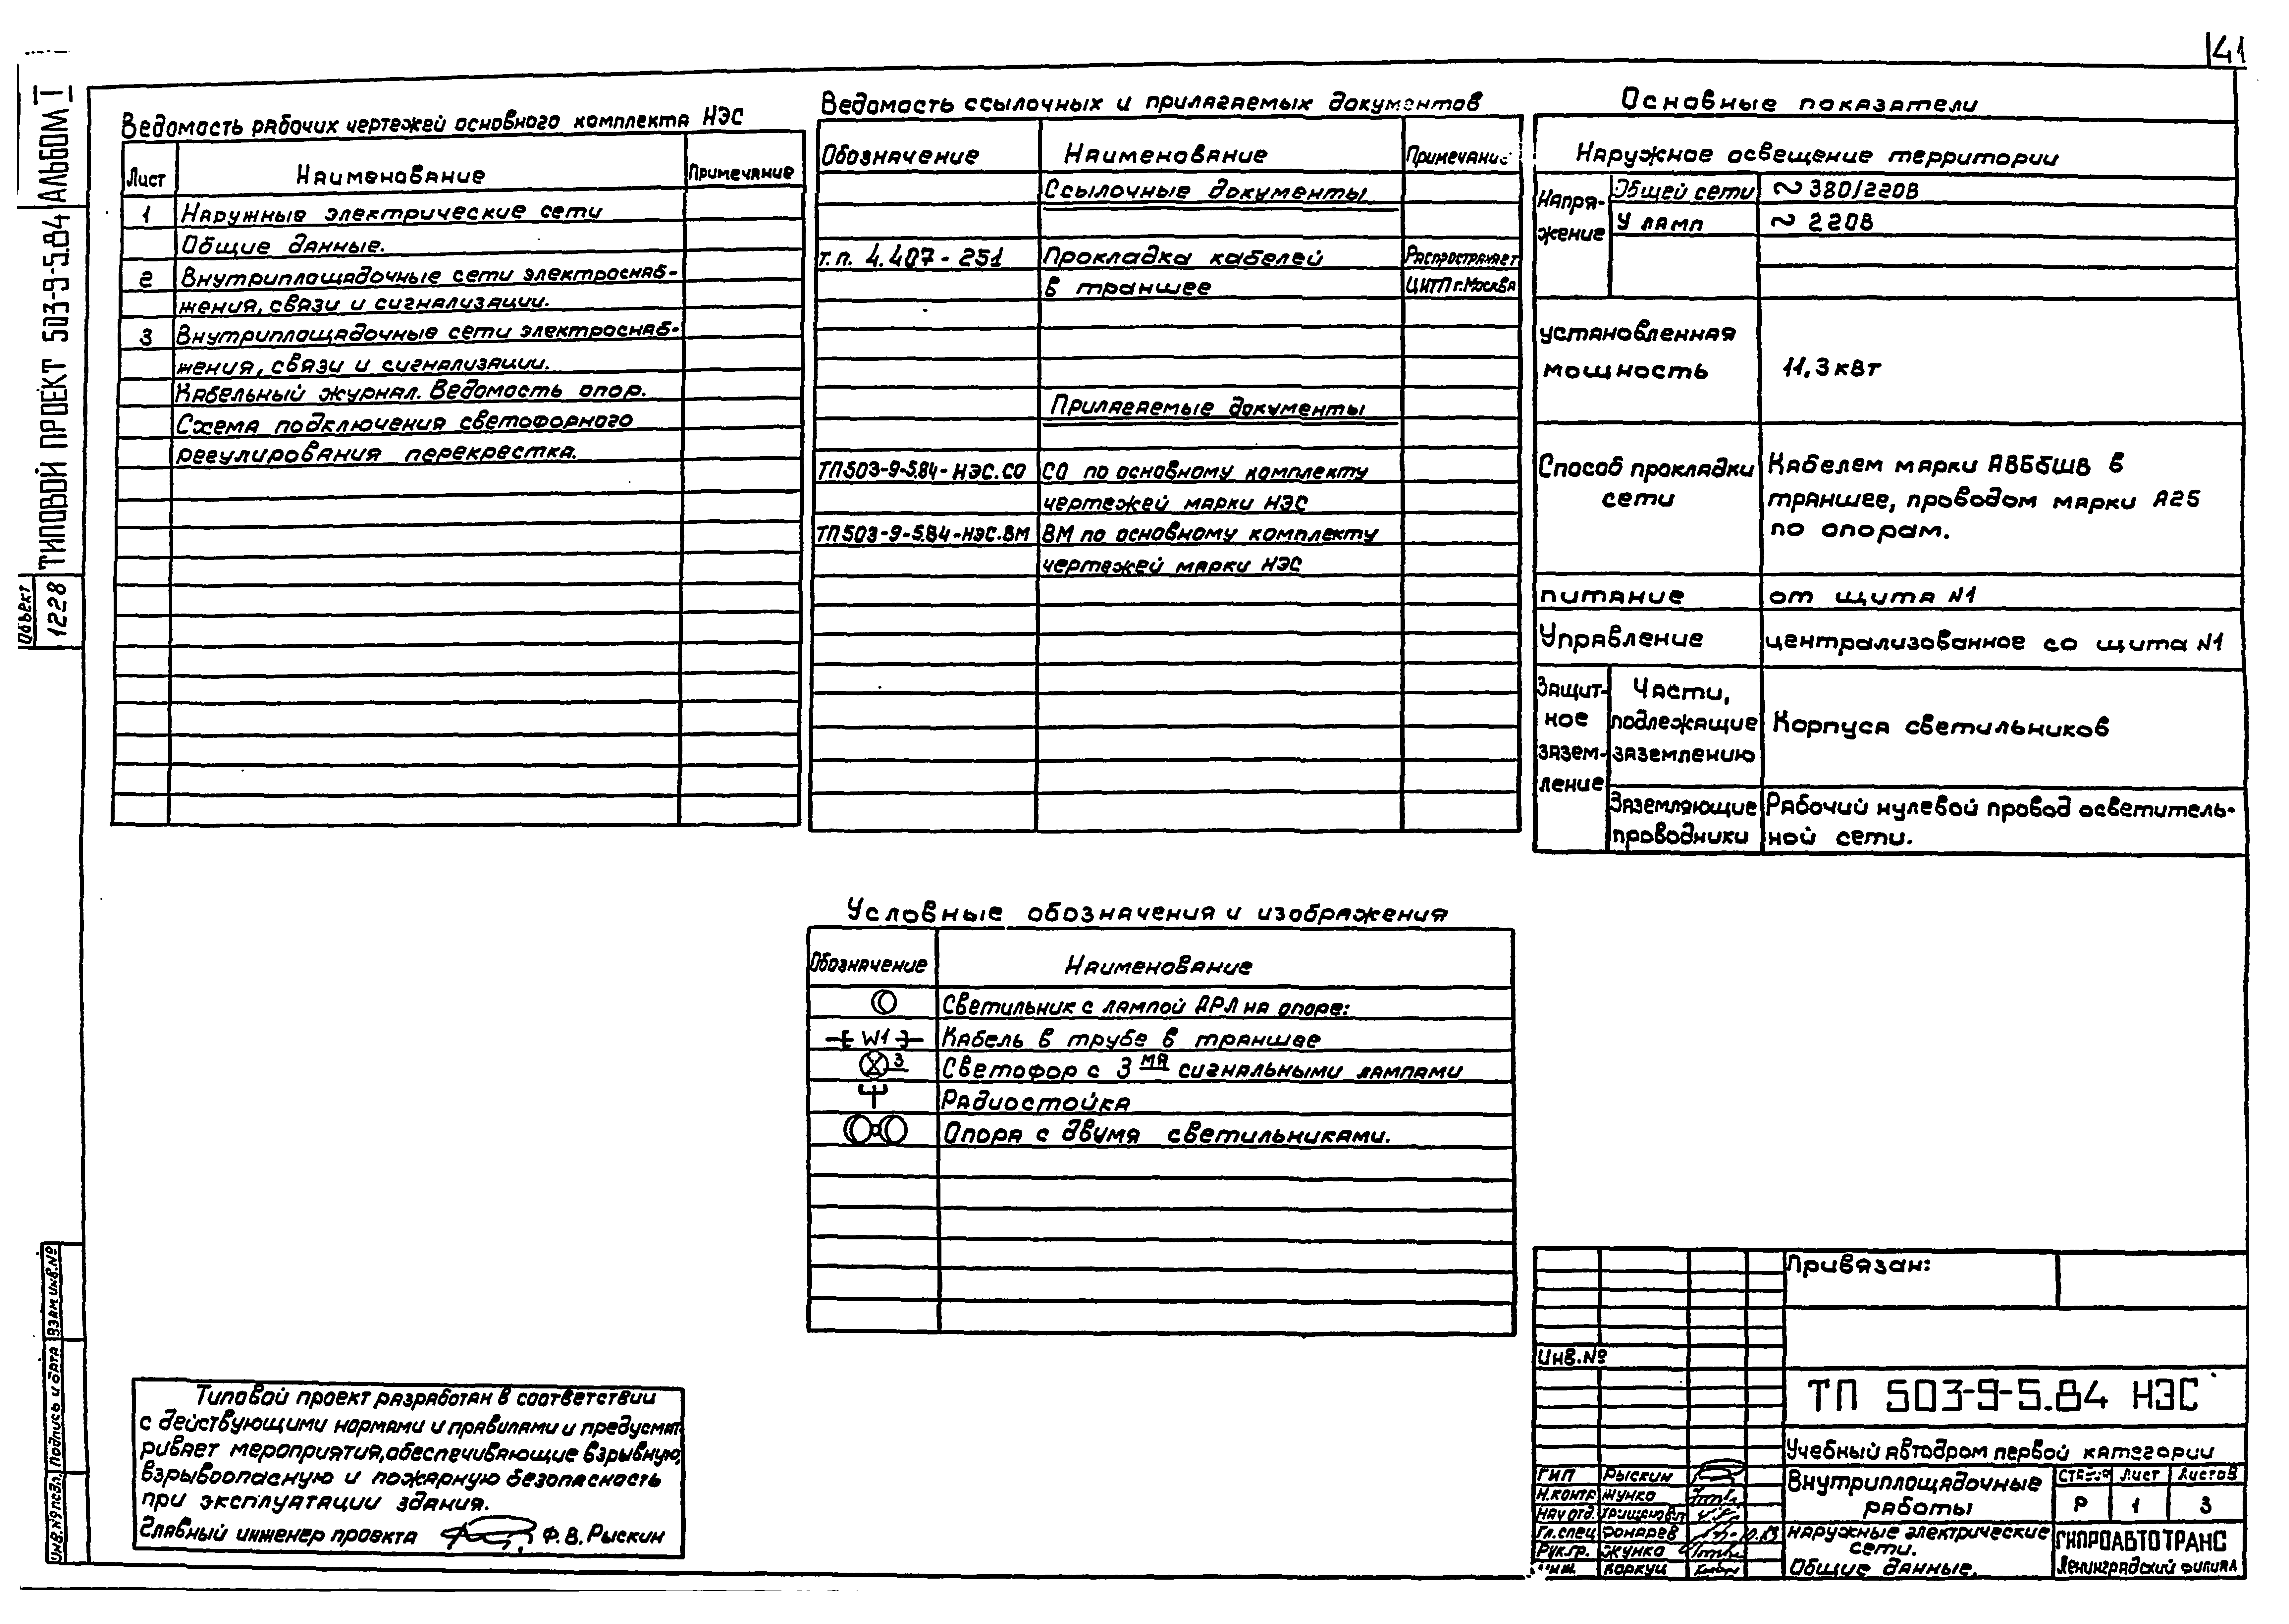 41
Альбом I
Типовой проект 503-9-5.84
Объект
1228
Ведомость рабочих чертежей основного комплекта НЭС
Лист
Наименование
Примечание
1
Наружные электрические сети
Общие данные.
2
Внутриплощадочные сети электроснаб-
жения, связи и сигнализации.
3
Внутриплощадочные сети электроснаб-
жения, связи и сигнализации.
Кабельный журнал. Ведомость опор.
Схема подключения светофорного
регулирования перекрестка.
Ведомость ссылочных и прилагаемых документов
Обозначение
Наименование
Примечание
Ссылочные документы
т.п. 4.407-251
Прокладка кабелей
Распространяет
в траншее
ЦИТП г. Москва
Прилагаемые документы
ТП503-9-5.84-НЭС.СО
СО по основному комплекту
чертежей марки НЭС
ТП503-9-5.84-НЭС.ВМ
ВМ по основному комплекту
чертежей марки НЭС
Основные показатели
Наружное освещение территории
Напря-
жение
Общей сети
~380/220В
У ламп
~220В
установленная
мощность
11,3 кВт
Способ прокладки
сети
Кабелем марки АВБбШВ в
траншее, проводом марки А25
по опорам.
питание
от щита N1
Управление
централизованное со щита N1
Защит-
ное
зазем-
ление
Части,
подлежащие
заземлению
Корпуса светильников
Заземляющие
проводники
Рабочий нулевой провод осветитель-
ной сети.
Условные обозначения и изображения
Обозначение
Наименование
Светильник с лампой ДРЛ на опоре:
W1
Кабель в трубе в траншее
3
Светофор с 3мя сигнальными лампами
Радиостойка
Опора с двумя светильниками.
Типовой проект разработан в соответствии
с действующими нормами и правилами и предусмат-
ривает мероприятия, обеспечивающие взрывную,
взрывоопасную и пожарную безопасность
при эксплуатации здания.
Главный инженер проекта
Ф.В.Рыскин
Взам.инв.№
Подпись и дата
Инв.№подл.
Привязан:
Инв.№
ТП 503-9-5.84 НЭС
Учебный автодром первой категории
ГИП
Рыскин
Н.контр
Жунко
Нач отд.
Гл.спец
Фонарев
Рук.гр.
Жунко
Инж.
Коркуц
Внутриплощадочные
работы
Стадия
Лист
Листов
Р
1
3
Наружные электрические
сети.
Общие данные.
ГИПРОАВТОТРАНС
Ленинградский филиал